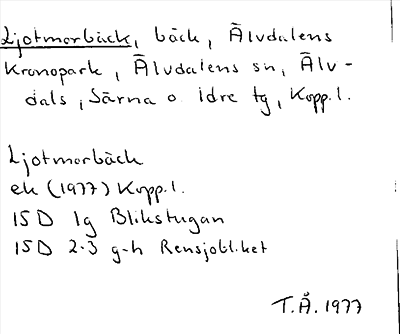 Ljotmorbäck, bäck, Älvdalens
Kronopark, Älvdalens sn, Älv-
dals, Särna o Idre tg, Kopp. l.
Ljotmorbäck
ek (1977) Kopp. l.
15D 1g Blikstugan
15D 2-3 g-h Rensjobliket
T.Å. 1977